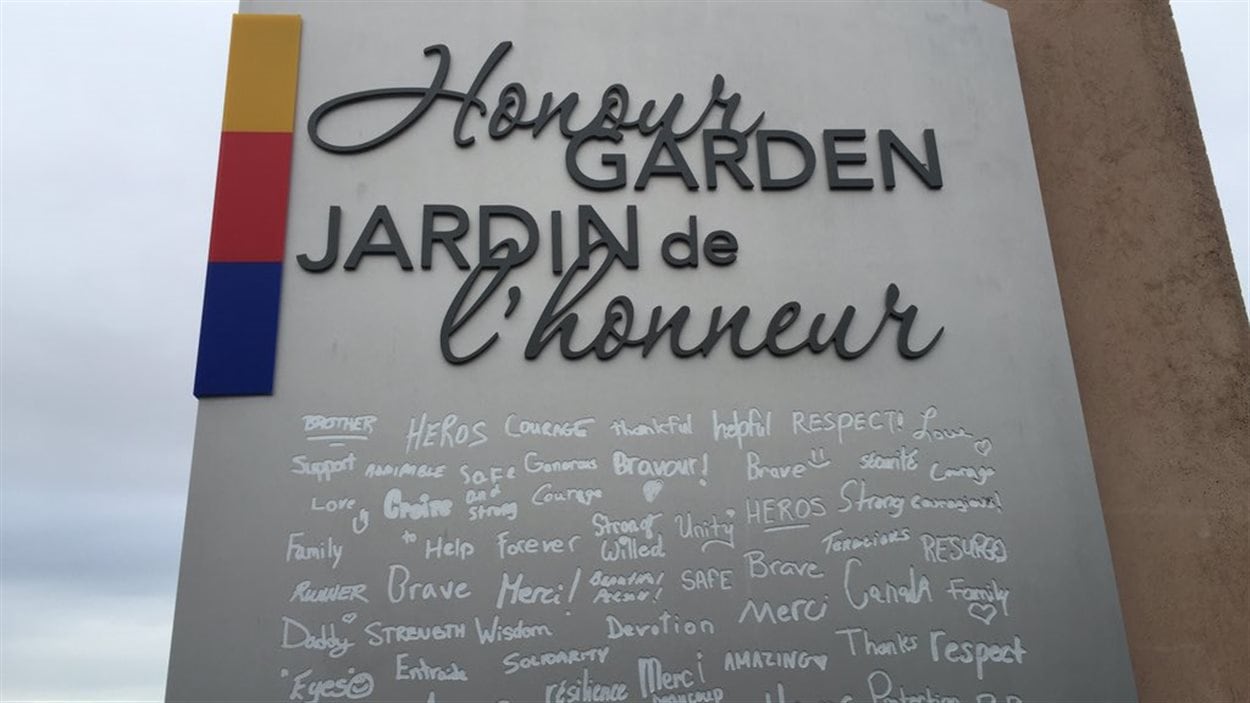 Honour
GARDEN
JARDIN de
l'honneur
BROTHER HEROS COURAGE thankful helpful RESPECT! Love
Support ADMIRABLE Safe and strong Generous Bravour! Brave sécurité Courage
Love Croire Courage Strong Willed Unity HEROS Strong courageous!
Family to Help Forever Tenacious RESURGO
RUNNER Brave Merci! SAFE Brave Canada Family
Daddy STRENGTH Wisdom Devotion Merci Thanks respect
"Eyes Entraide SOLIDARITY résilience Merci beaucoup AMAZING Protection